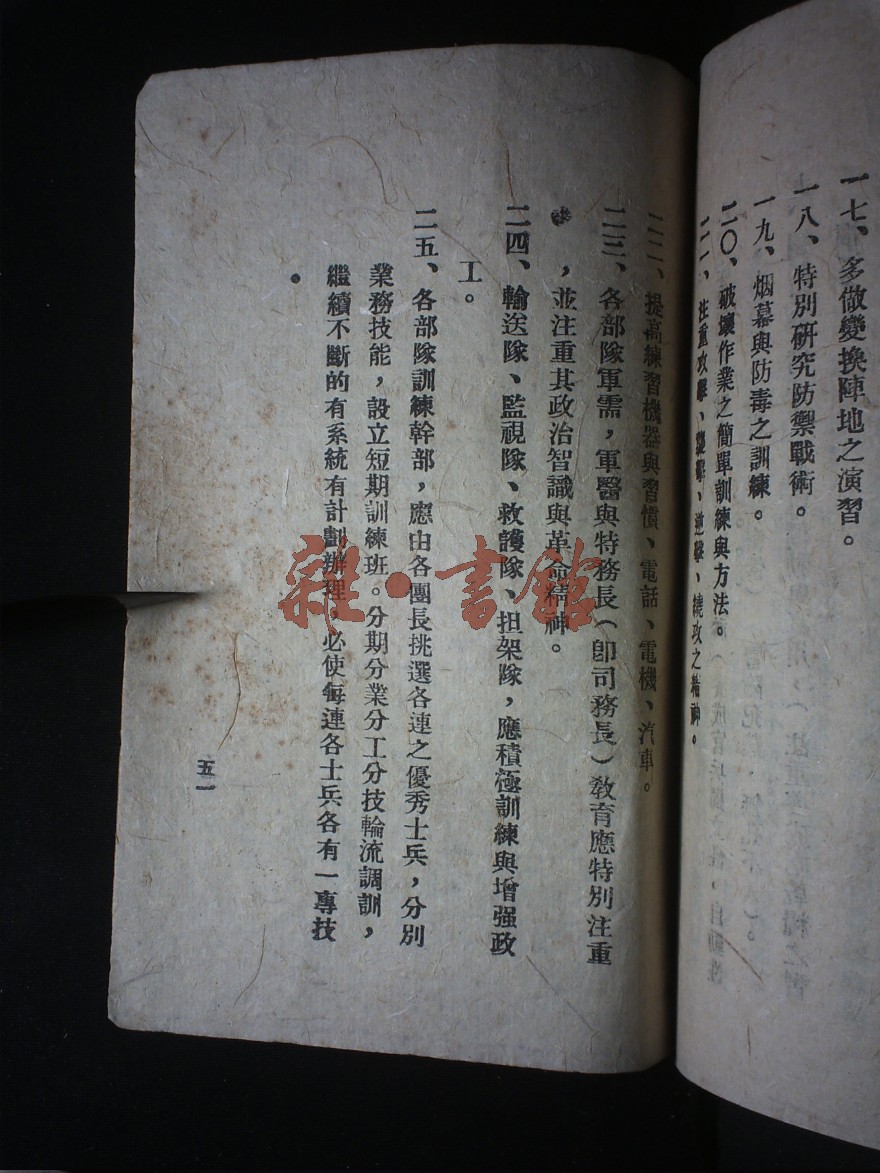 一七、多做變換陣地之演習。
一八、特別研究防禦戰術。
一九、烟幕與防毒之訓練。
二〇、破壞作業之簡單訓練與方法。
二一、注重攻擊、襲擊、逆擊、繞攻之精神。
二二、提高練習機器與習慣、電話、電機、汽車。
二三、各部隊軍需，軍醫與特務長（卽司務長）教育應特別注重
，並注重其政治智識與革命精神。
二四、輸送隊、監視隊、救護隊、担架隊，應積極訓練與增强政
工。
二五、各部隊訓練幹部，應由各團長挑選各連之優秀士兵，分別
業務技能，設立短期訓練班。分期分業分工分技輪流調訓，
繼續不斷的有系統有計劃辦理，必使每連各士兵各有一專技
。
五一
雜·書館